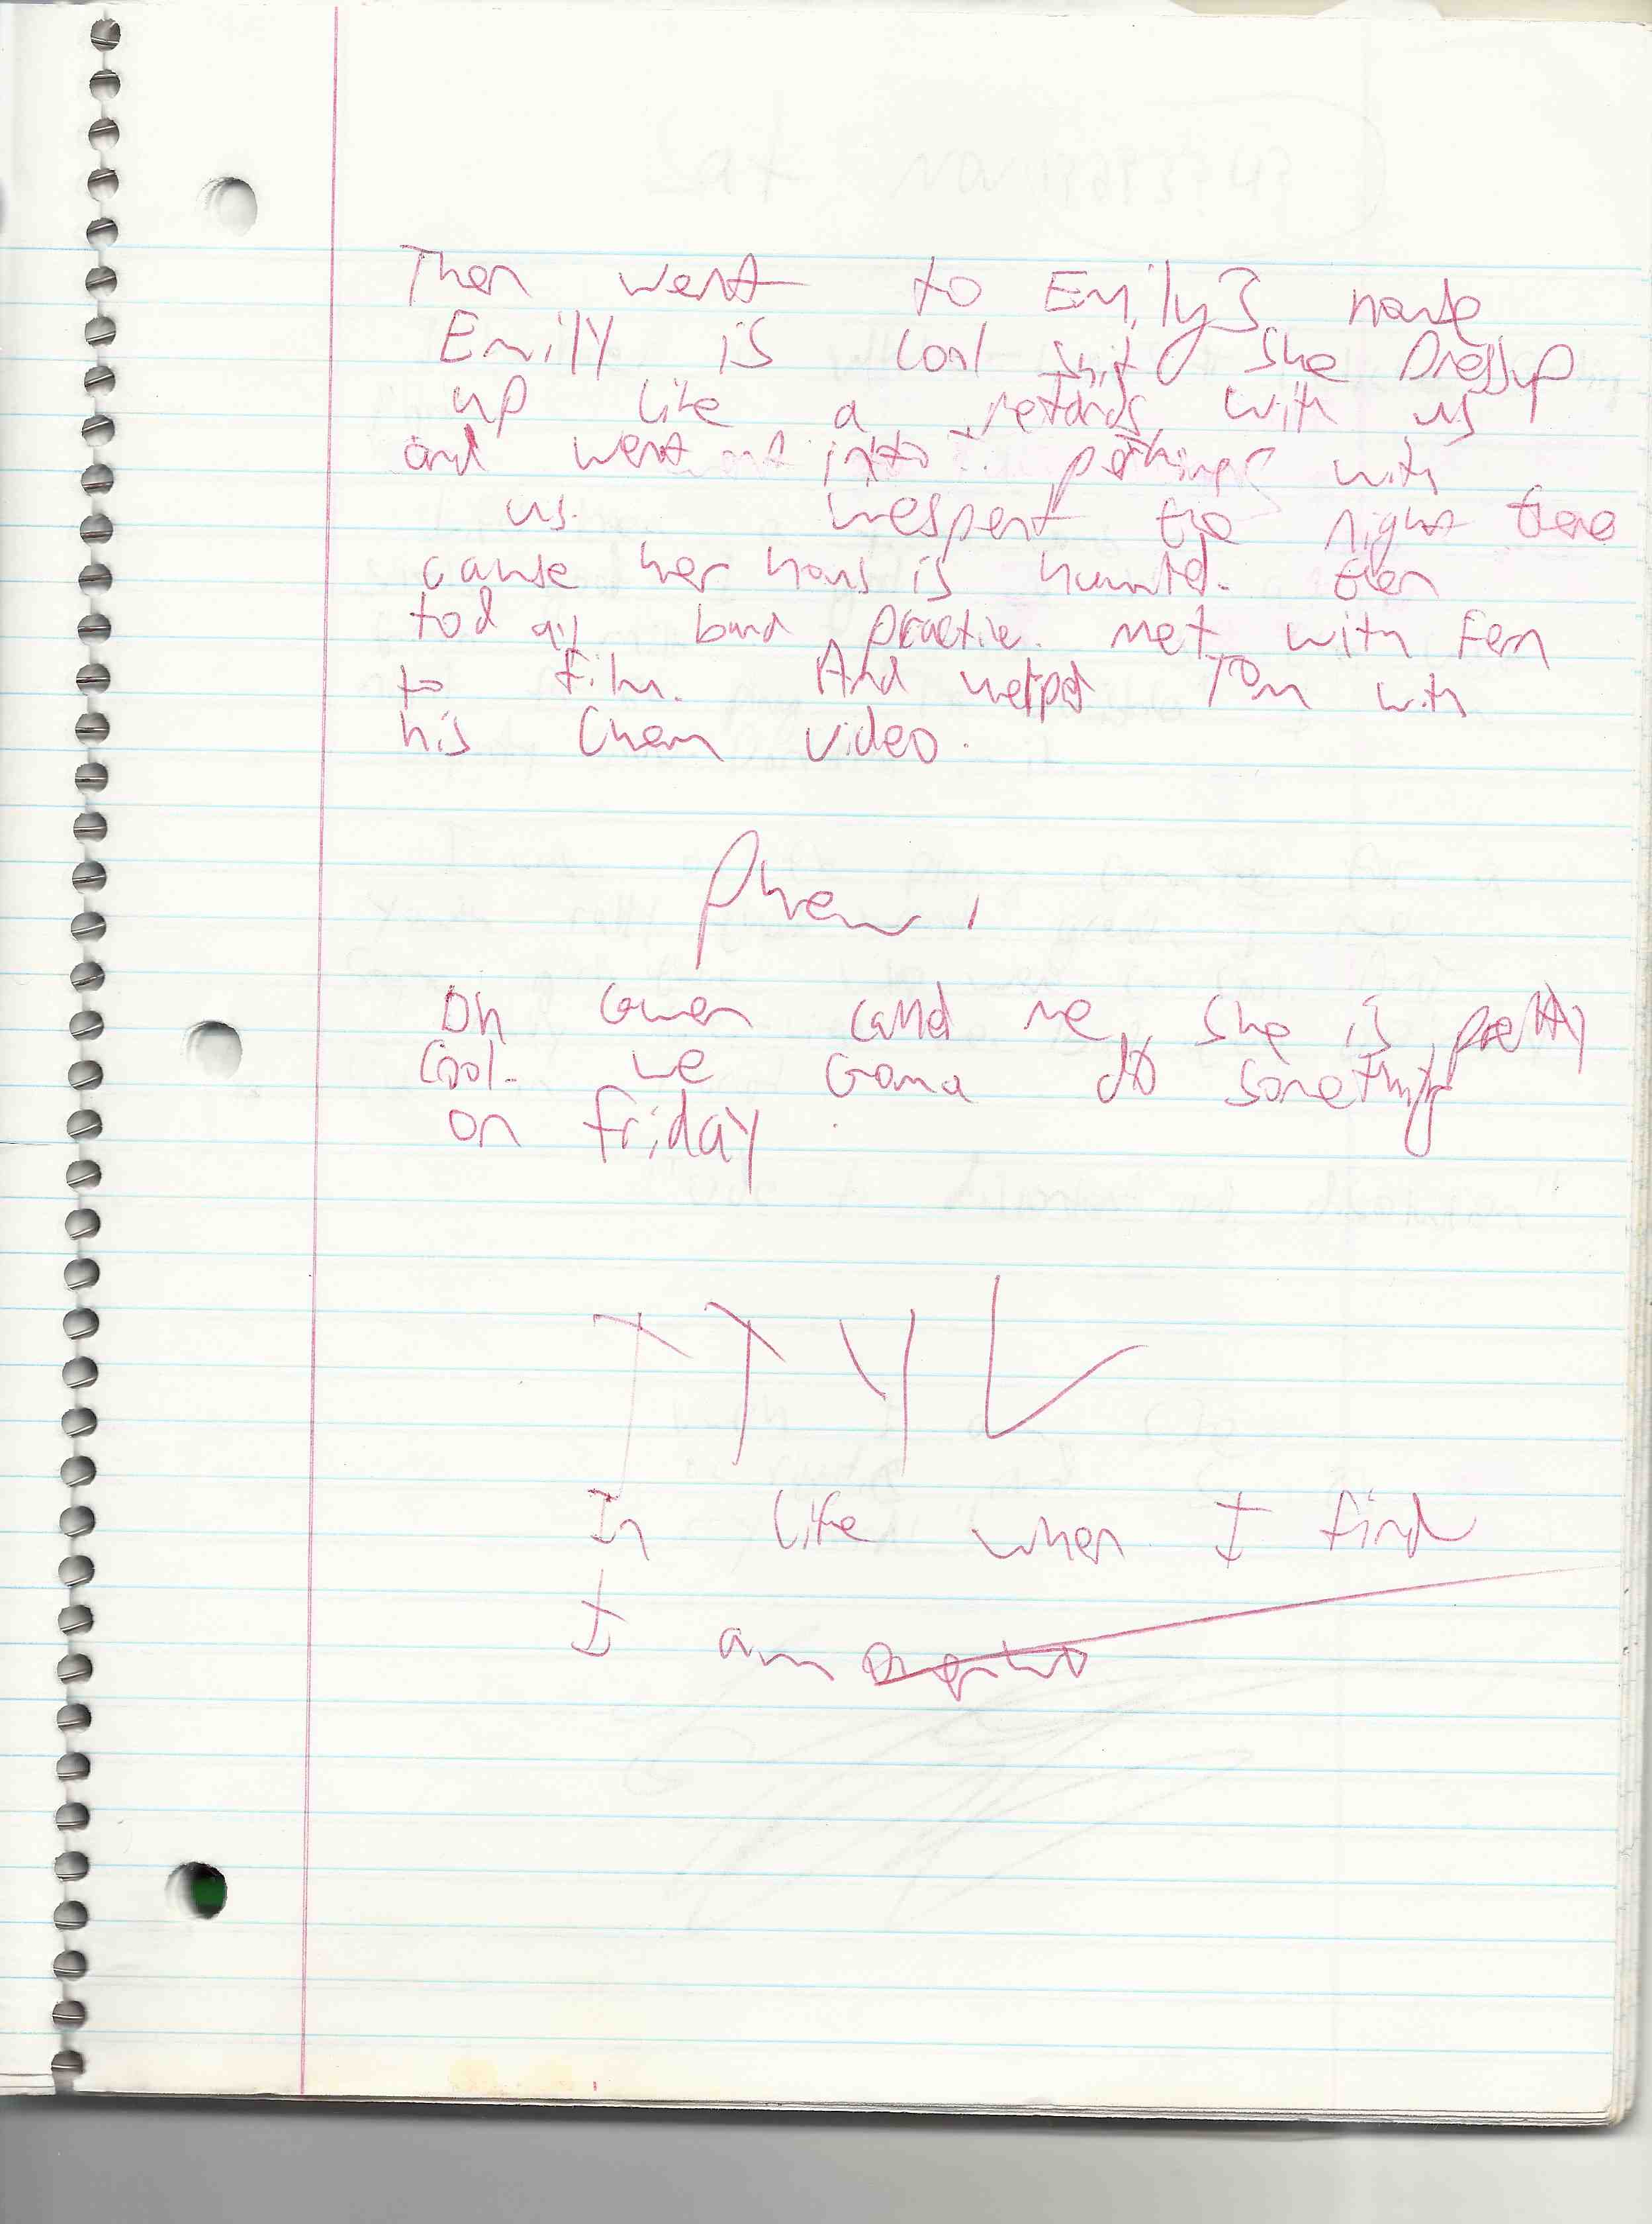 Then went to Emily's house
Emily is cool shit she Dressup
up like a retards with us
and went out into perkings with
us. we spent the night there
cause her hous is hunted. then
today band practice. met with Fern
to film. And helped Tom with
his Chem video.
phew!
Oh Gwen called me, she is pretty
Cool. we Gona do something
on friday.
TTYL
In life when I find
I am